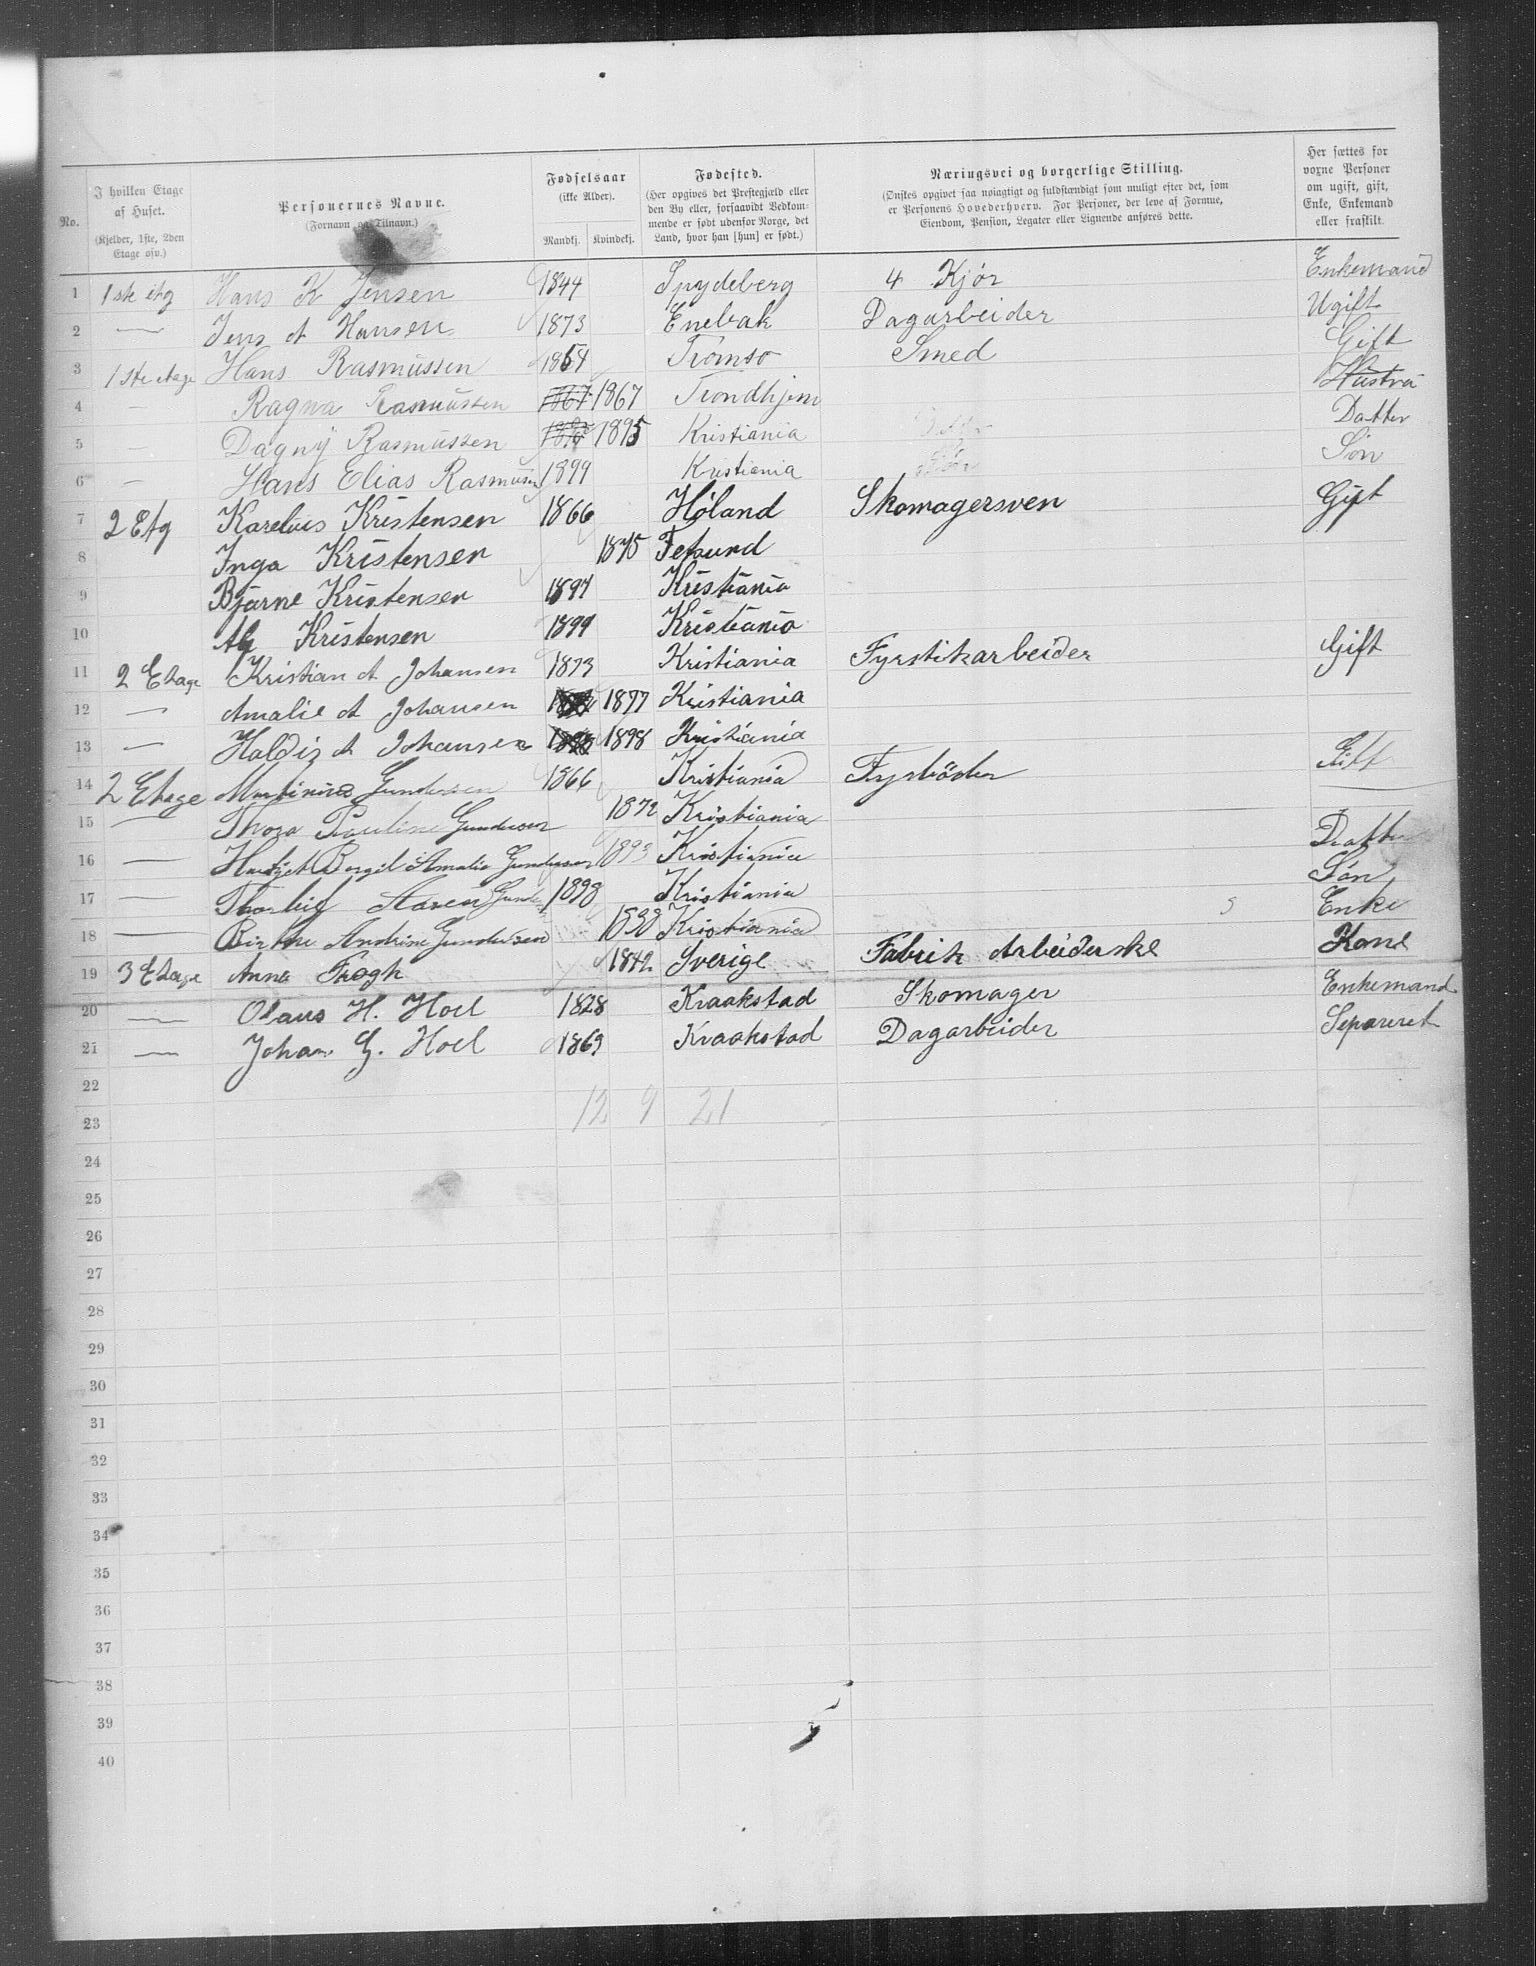 No. I hvilken Etage af Huset. (Kjelder, 1ste, 2den Etage osv.) Personernes Navne. (Fornavn og Tilnavn.) Fødselsaar (ikke Alder). Mandkj. Kvindekj. Fødested. (Her opgives det Prestegjæld eller den By eller, forsaavidt Vedkommende er født udenfor Norge, det Land, hvor han [hun] er født.) Næringsvei og borgerlige Stilling. (Ønskes opgivet saa nøiagtigt og fuldstændigt som muligt efter det, som er Personens Hovederhverv. For Personer, der leve af Formue, Eiendom, Pension, Legater eller Lignende anføres dette. Her sættes for vorne Personer om ugift, gift, Enke, Enkemand eller fraskilt.
1 1 ste etg Hans K Jensen 1844 Spydeberg 4 Kjør Enkemand
2 — Jens A Hansen 1873 Enebak Dagarbeider Ugift
3 1 ste etage Hans Rasmussen 1864 Tromsø Smed Gift
4 — Ragna Rasmussen 1867 1867 Trondhjem Hustru
5 — Dagny Rasmussen 1895 Kristiania Datter
6 — Hans Elias Rasmussen 1899 Kristiania Søn
7 2 Etg Karelius Kristensen 1866 Høland Skomagersven Gift
8 Inga Kristensen 1875 Fetsund
9 Bjarne Kristensen 1897 Kristiania
10 Kristensen 1899 Kristiania
11 2 Etage Kristian A Johansen 1873 Kristiania Fyrstikarbeider Gift
12 — Amalie A Johansen 1877 Kristiania
13 — Haldis A Johansen 1898 Kristiania
14 2 Etage Martinius Gundersen 1866 Kristiania Fyrbøder Gift
15 — Thora Pauline Gundersen 1872 Kristiania
16 — Bergit Amalie Gundersen 1893 Kristiania Datter
17 — Gunde 1898 Kristiania Søn
18 — Birthe Andrine Gundersen Kristiania Enke
19 3 Etage Anna Frogh 1842 Sverige Fabrik Arbeiderske Kone
20 — Olaus H. Hoel 1828 Kraakstad Skomager Enkemand
21 — Johan G. Hoel 1869 Kraakstad Dagarbeider Separeret
22
23 12 9 21
24
25
26
27
28
29
30
31
32
33
34
35
36
37
38
39
40